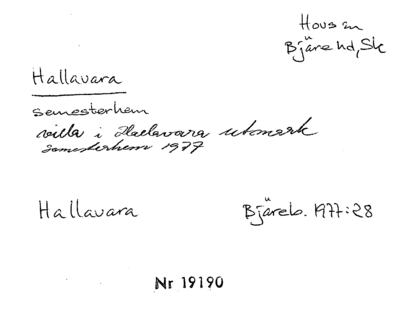 Hovs sn
Bjäre hd, Sk
Hallavara
semesterhem
villa i Hallavara utmark
semesterhem 1977
Hallavara Bjäreb. 1977:28
Nr 19190